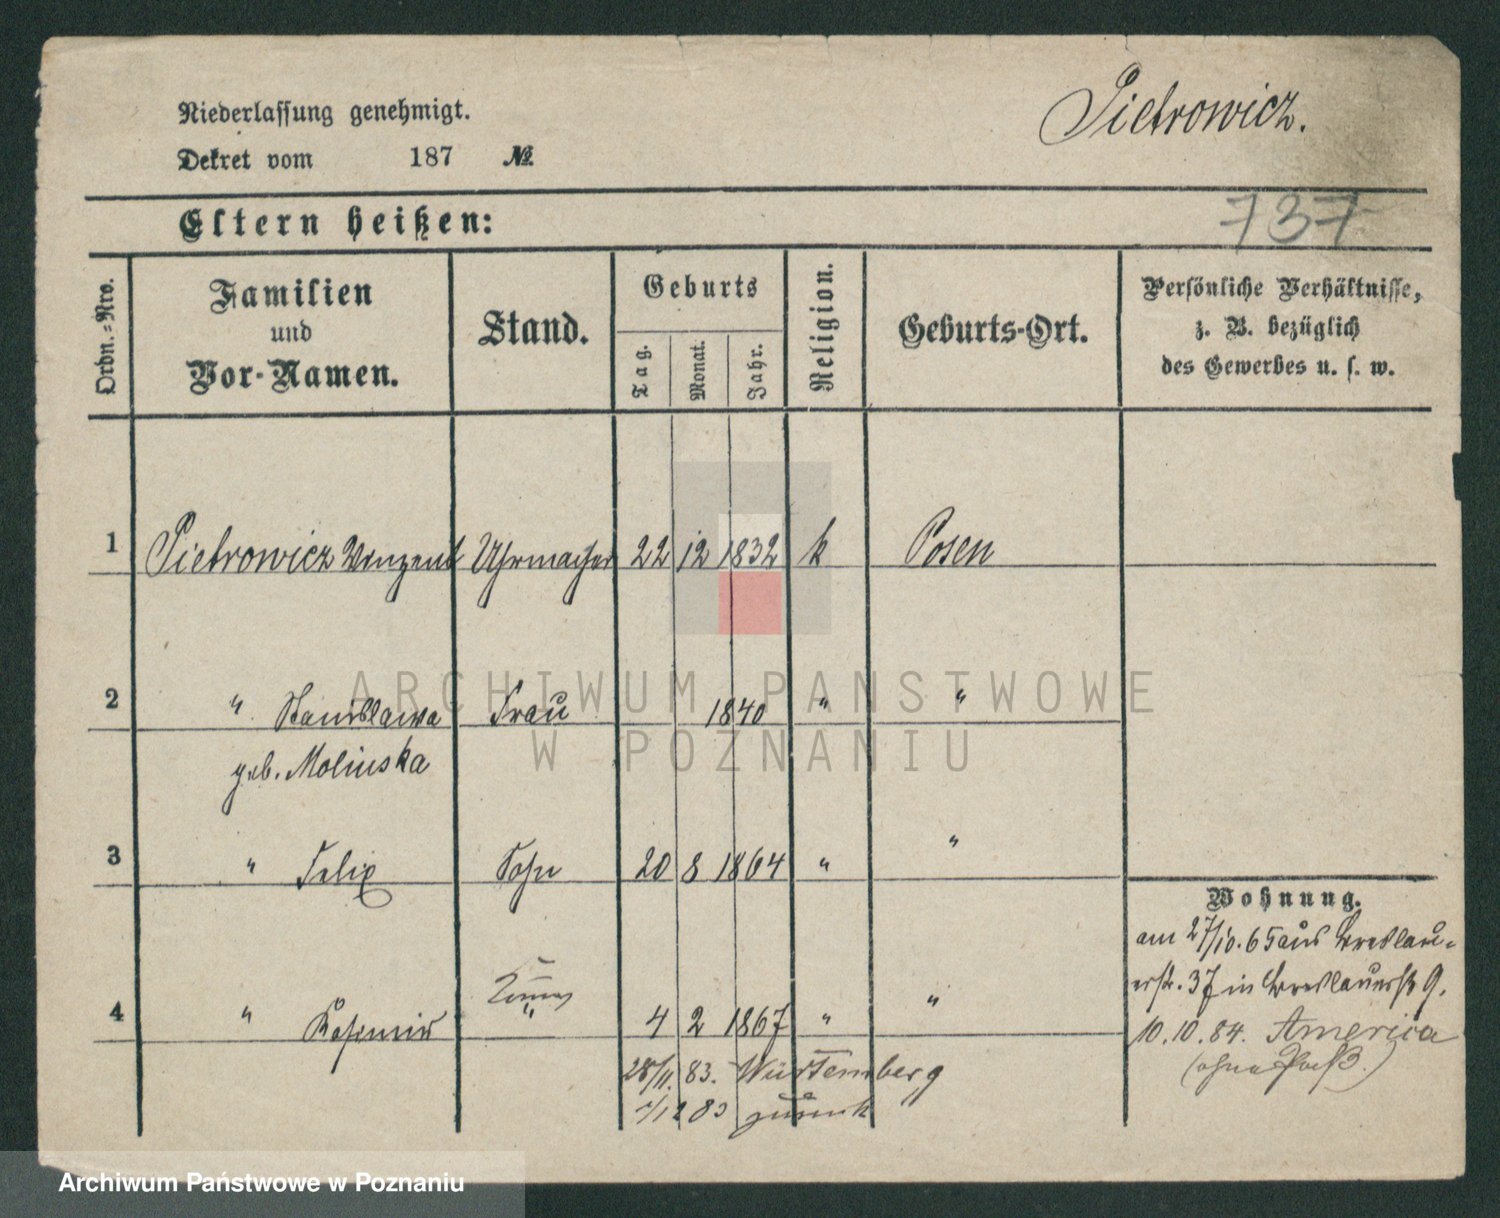 Niederlassung genehmigt.
Pietrowicz.
Dekret vom 187 №
Eltern heißen:
737
Ordn.=Nro.
Familien
und
Vor-Namen.
Stand.
Geburts
Tag.
Monat.
Jahr.
Religion.
Geburts-Ort.
Persönliche Verhältnisse,
z. B. bezüglich
des Gewerbes u. s. w.
1 Pietrowicz Vinzent Uhrmacher 22 12 1832 k Posen
2 " Stanislawa Frau 1840 " "
geb. Molinska
3 " Felix Sohn 20 8 1864 " "
Wohnung.
am 27/10.65 aus Breslau-
erstr. 37 in Breslauerstr 9.
4 " Kasimir " 4 2 1867 " "
10.10.84. America
(ohne Paß.)
28/11. 83. Würtemberg
12 83 zurück
ARCHIWUM PANSTWOWE
W POZNANIU
Archiwum Państwowe w Poznaniu